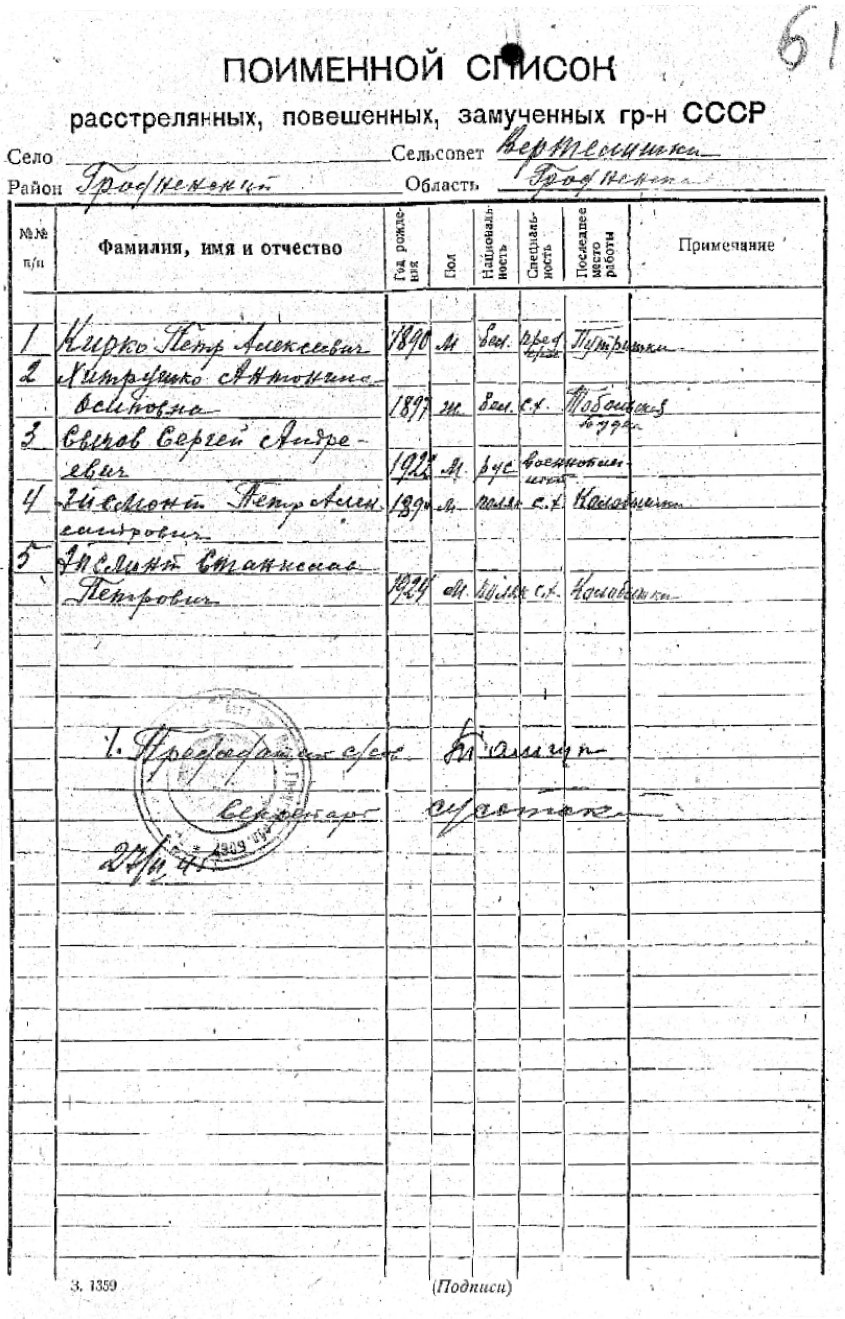 61
ПОИМЕННОЙ СПИСОК
расстрелянных, повешенных, замученных гр-н СССР
Село Сельсовет Вертелишки
Район Гродненский Область Гродненск
№№ п/п Фамилия, имя и отчество Год рождения Пол Националь-ность Специаль-ность Последнее место работы Примечание
1 Кирко Петр Алексеевич 1890 м бел. пред Путришки
2 Хитрушко Антонина
Осиповна 1897 ж бел. с.х.
3 Сычов Сергей Андре-
евич 192 м рус военноплен-
4 Зисмонт Петр Алек- 189 м поляк с.х Колобишки
сандрович
5 Зисмонт Станислав
Петрович 1924 м. поляк с.х. Колобишки
Председатель с/сов.
Секретарь
27/
З. 1359 (Подписи)